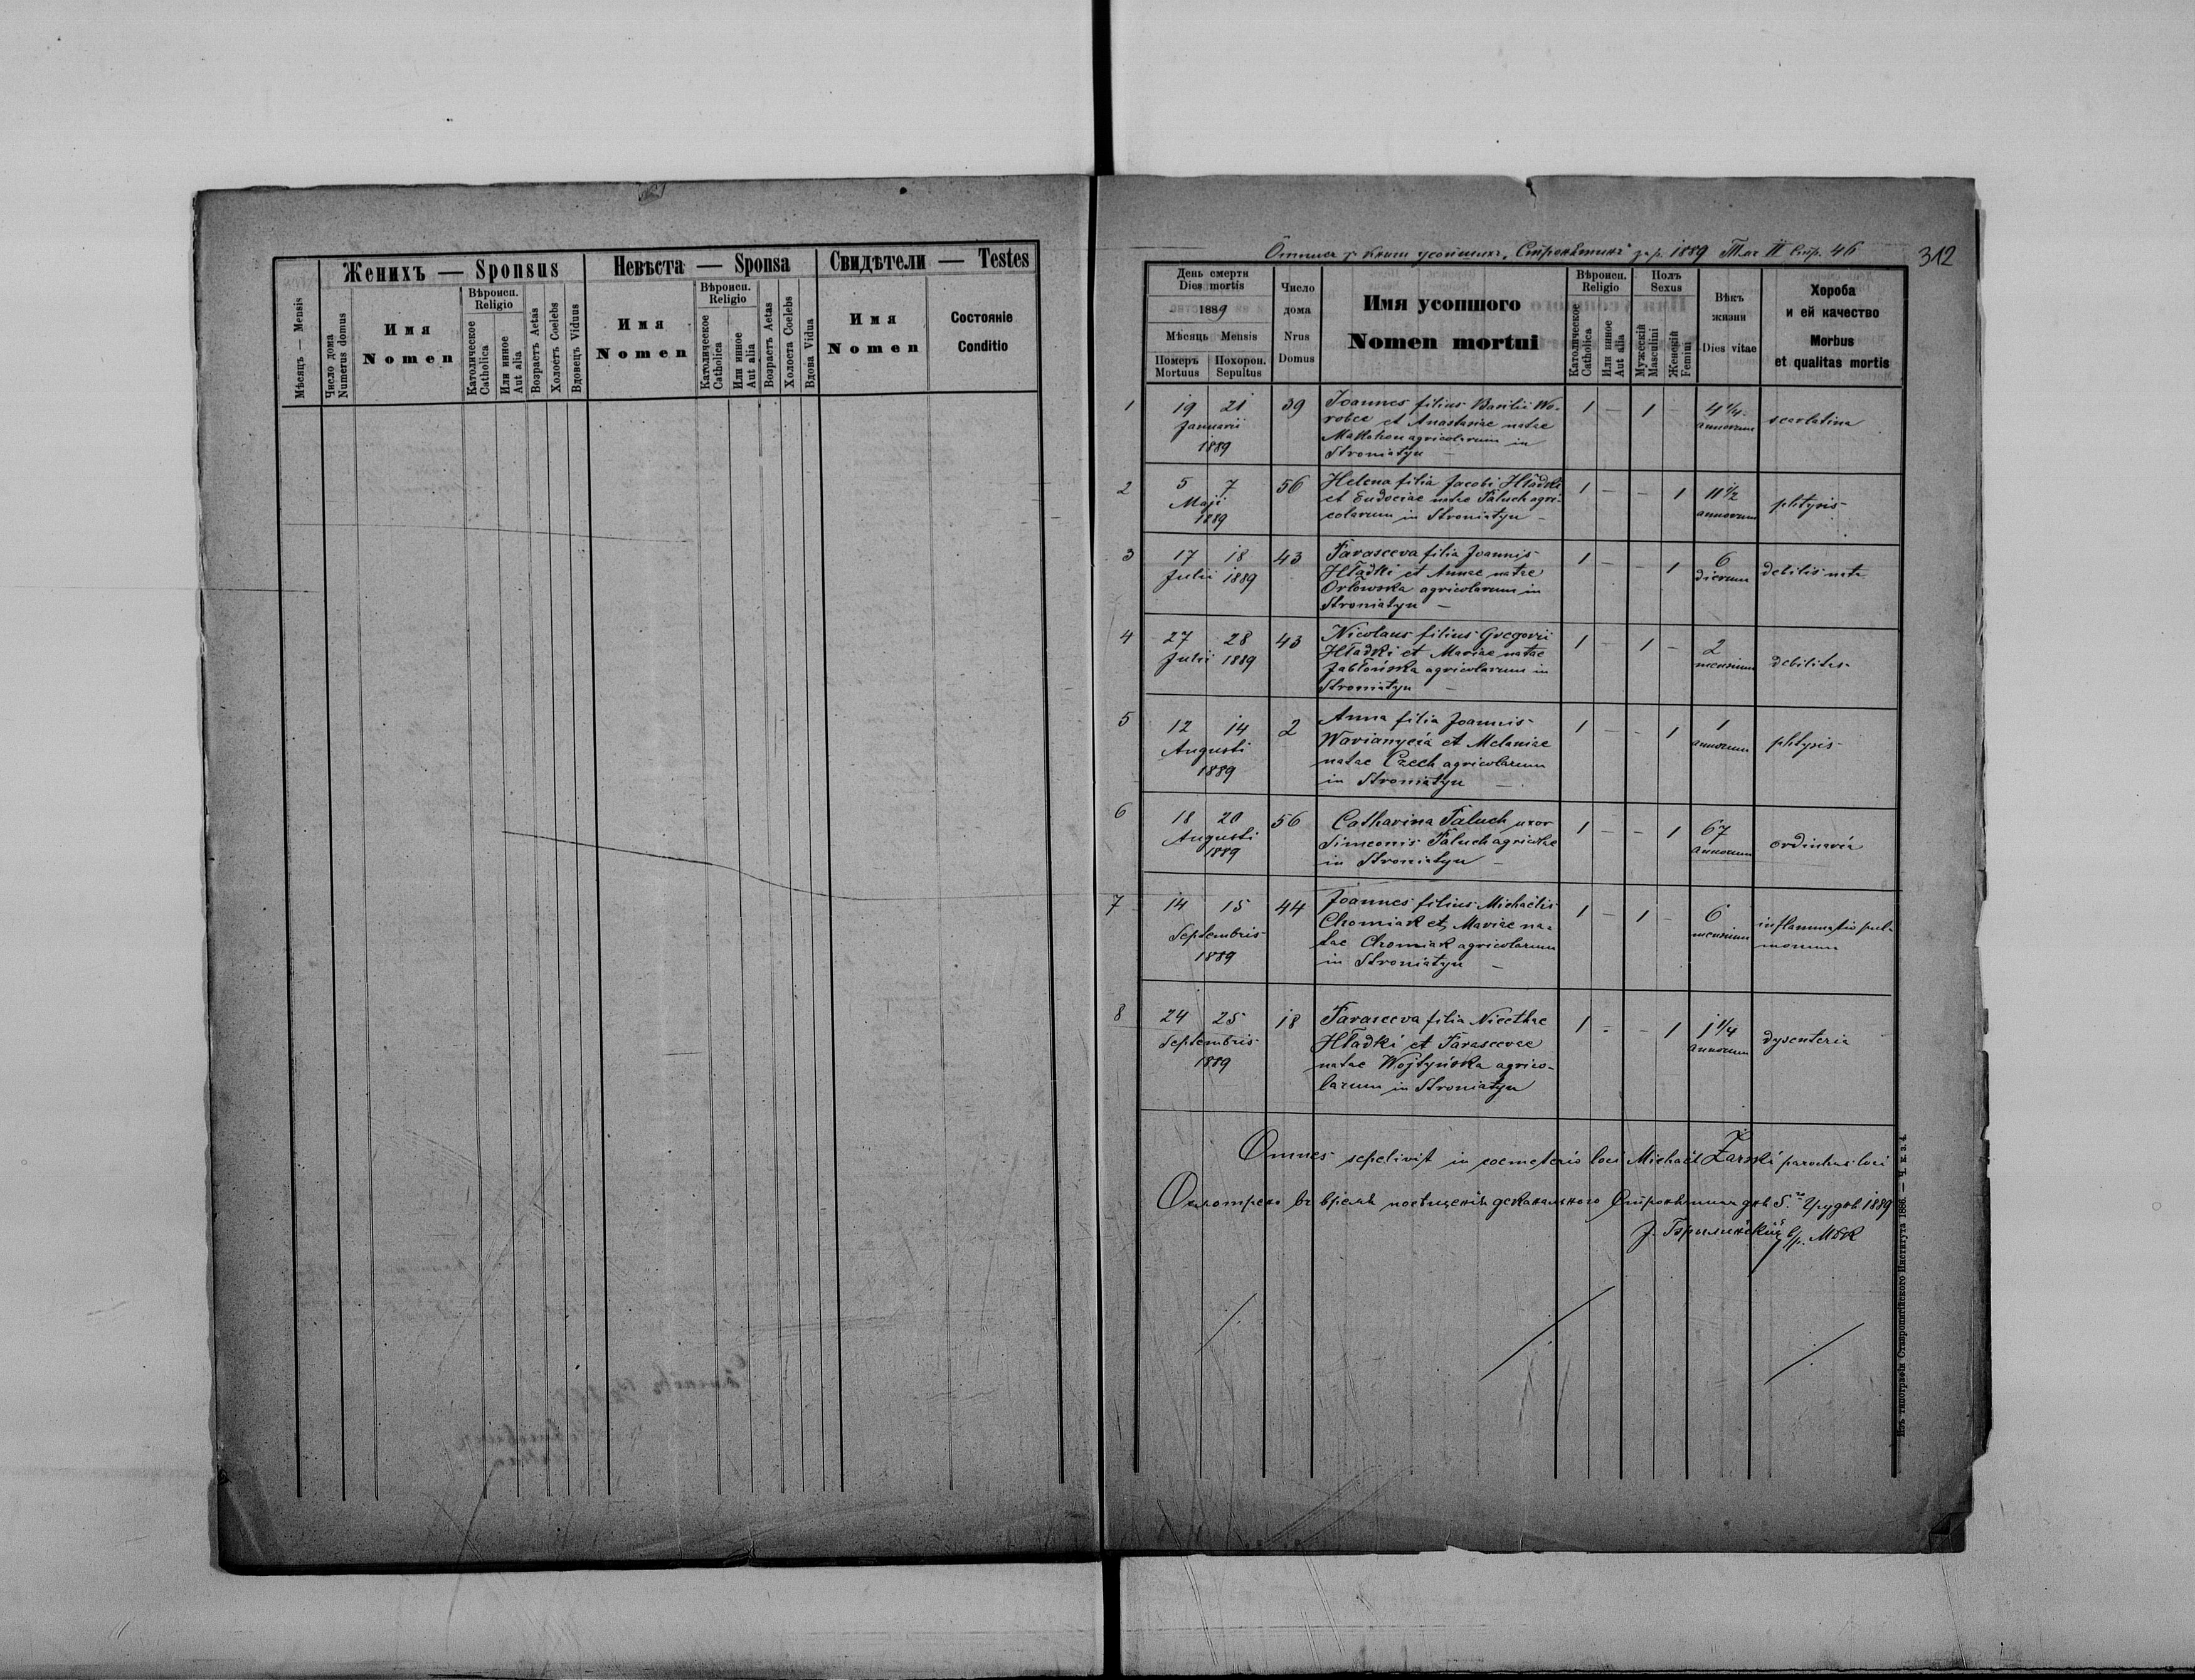 Женихъ — Sponsus
Невѣста — Sponsa
Свидѣтели — Testes
Мѣсяць — Mensis
Число дома
Numerus domus
Имя
Nomen
Вѣроисп.
Religio
Католическое
Catholica
Или инное
Aut alia
Возрастъ Aetas
Холостъ Coelebs
Вдовецъ Viduus
Имя
Nomen
Вѣроисп.
Religio
Католическое
Catholica
Или инное
Aut alia
Возрастъ Aetas
Холоста Coelebs
Вдова Vidua
Имя
Nomen
Состояніе
Conditio
за р. 1889 Том II Стр. 46
312
День смерти
Dies mortis
1889
Мѣсяць Mensis
Померъ
Mortuus
Похорон.
Sepultus
Число
дома
Nrus
Domus
Имя усопшого
Nomen mortui
Вѣроисп.
Religio
Католическое
Catholica
Или инное
Aut alia
Полъ
Sexus
Мужескій
Masculini
Женскій
Femini
Вѣкъ
жизни
Dies vitae
Хороба
и ей качество
Morbus
et qualitas mortis
1
19 21
Januarii
1889
39
Joannes filius Basilii Wo-
robec et Anastasiae natae
Makohon agricolarum in
Stroniatyn —
1 — 1 —
4 1/4
annorum
scarlatina
2
5 7
Maji
1889
56
Helena filia Jacobi Hładki
et Eudociae natae Paluch agri-
colarum in Stroniatyn —
1 — — 1
11 1/2
annorum
phtysis
3
17 18
Julii 1889
43
Parasceva filia Joannis
Hładki et Annae natae
Orłowska agricolarum in
Stroniatyn —
1 — — 1
6
dierum
debilis nata
4
27 28
Julii 1889
43
Nicolaus filius Gregorii
Hładki et Mariae natae
Jabłońska agricolarum in
Stroniatyn —
1 — 1 —
2
mensium
debilitas
5
12 14
Augusti
1889
2
Anna filia Joannis
Warianycia et Melaniae
natae Czech agricolarum
in Stroniatyn —
1 — — 1
1
annorum
phtysis
6
18 20
Augusti
1889
56
Catharina Paluch uxor
Simeonis Paluch agricolae
in Stroniatyn —
1 — — 1
67
annorum
ordinaria
7
14 15
Septembris
1889
44
Joannes filius Michaelis
Chomiak et Mariae na-
tae Chomiak agricolarum
in Stroniatyn —
1 — 1 —
6
mensium
inflammatio pul-
monum
8
24 25
Septembris
1889
18
Parasceva filia Nicethae
Hładki et Parascevae
natae Wojtyńska agrico-
larum in Stroniatyn
1 — — 1
1 1/4
annorum
dysenteria
Omnes sepelivit in coemeterio loci Michael Żarski parochus loci
посѣщенія деканального 1889
Изъ типографіи Ставропигійского Института 1886. — Ч. к. з. 4.